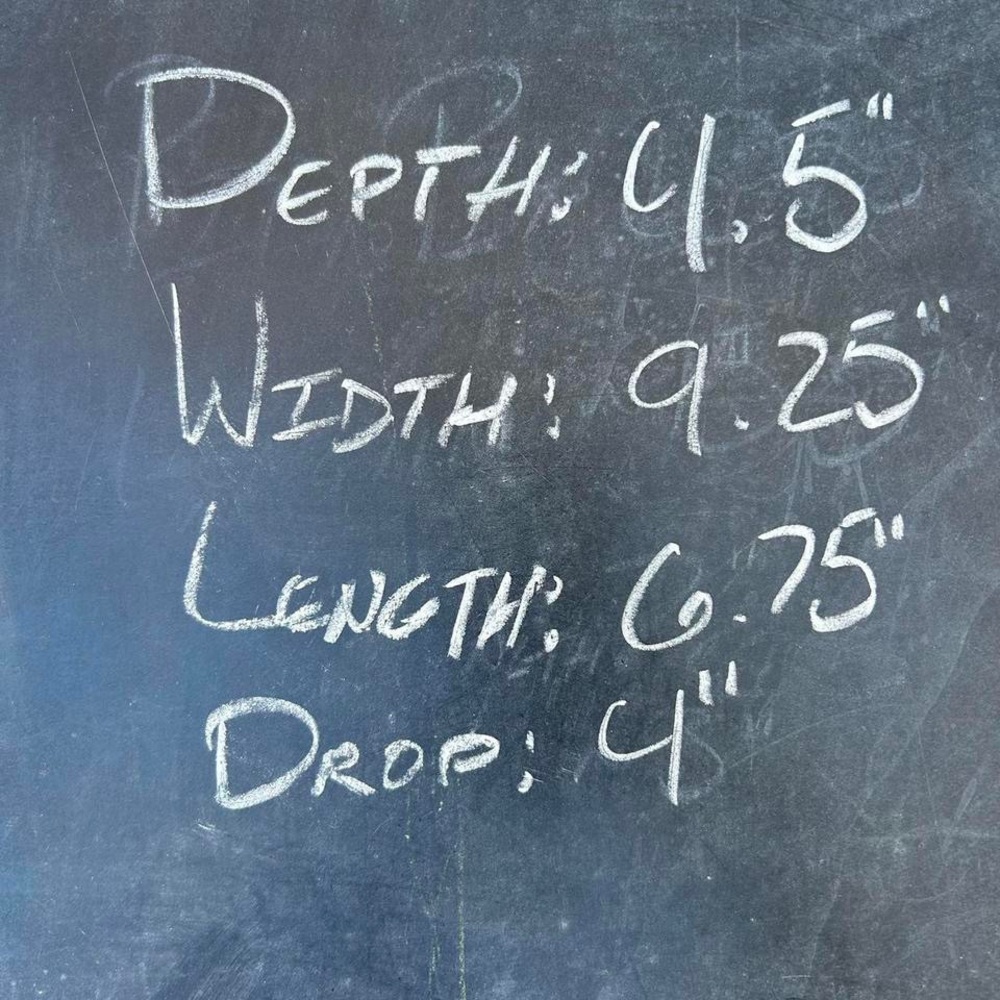 DEPTH: 4.5"
WIDTH: 9.25"
LENGTH: 6.75"
DROP: 4"